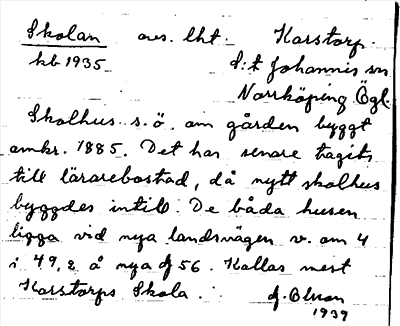 Skolan avs. lht. Karstorp.
kb 1935 S:t Johannis sn
Norrköping Ögl.
Skolhus s.ö. om gården byggt
omkr. 1885. Det har senare tagits
till lärarebostad, då nytt skolhus
byggdes intill. De båda husen
ligga vid nya landsvägen v. om 4
i 49,2 å nya 56. Kallas mest
Karstorps Skola.
1939